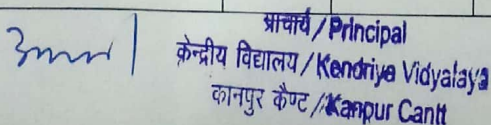 प्राचार्य / Principal
केन्द्रीय विद्यालय / Kendriya Vidyalaya
कानपुर कैण्ट / Kanpur Cantt